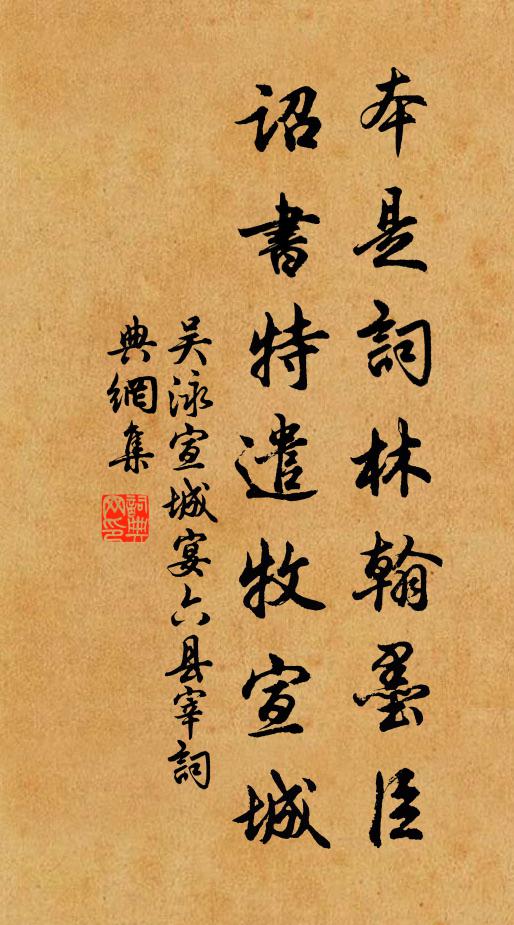 本是詞林翰墨臣
詔書特遣牧宣城
吴泳宣城宴六县宰詞
典網集
詞典网印